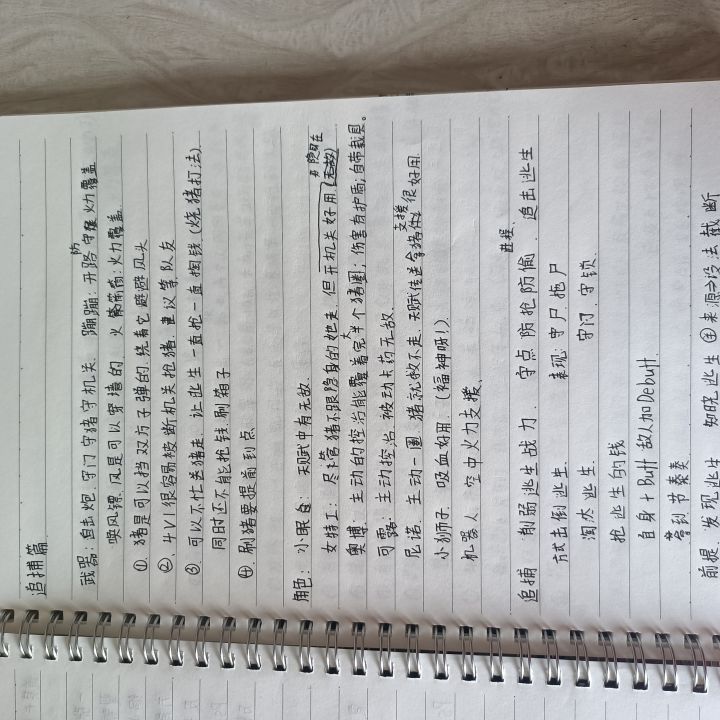 追捕篇
武器：自击炮，守门守猪守机关、蹦蹦：开路守 防 火力覆盖
唤风镖，风是可以穿墙的，火箭筒：火力覆盖
① 猪是可以挡双方子弹的，绕着它避避风头
②、4V1很容易被断机关抢猪，建议等队友
③ 可以不忙送猪走，让逃生一直抢一直掏钱（烧猪打法）
同时还不能抢钱刷箱子
④、刷猪要提前到点
角色：小眠台：天赋中有无敌
女特工：尽管猪不跟隐身的她走，但开机关好用（无敌） 隐身在
奥博：主动的控治能覆盖完大半个猪圈；伤害有护盾，自带截息。
可露：主动控治，被动卡药无敌
尼诺：主动一圈，猪就救不走，天赋传送拿猪 支援很好用
小狮子：吸血好用：（福神呀！）
机器人：空中火力支援、
追捕 削弱逃生战力、守点防抢防偷、追击逃生 进程、
方式 击倒逃生 表现：守尸拖尸
淘汰逃生 守门、守锁
抢逃生的钱
自身+Buff 敌人加Debuff
拿到节奏奏
前提、发现逃生 知晓逃生 ④来源没法截断